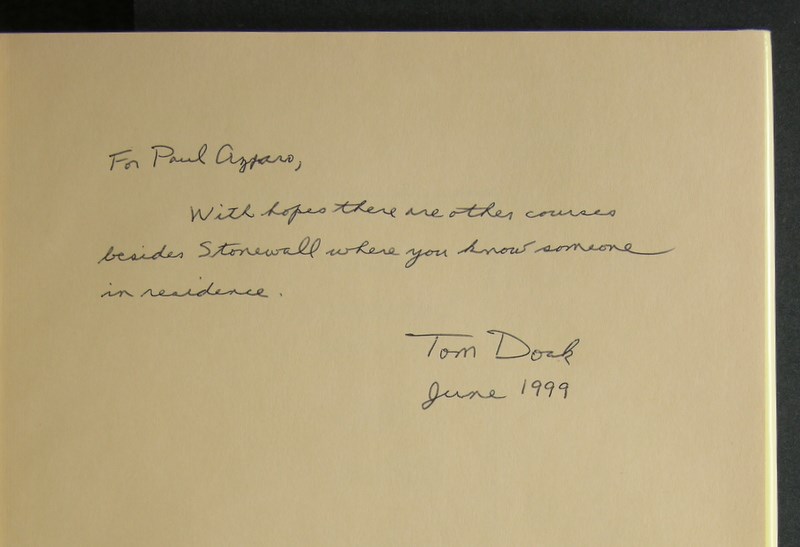 For Paul Azzaro,
With hopes there are other courses
besides Stonewall where you know someone
in residence.
Tom Doak
June 1999